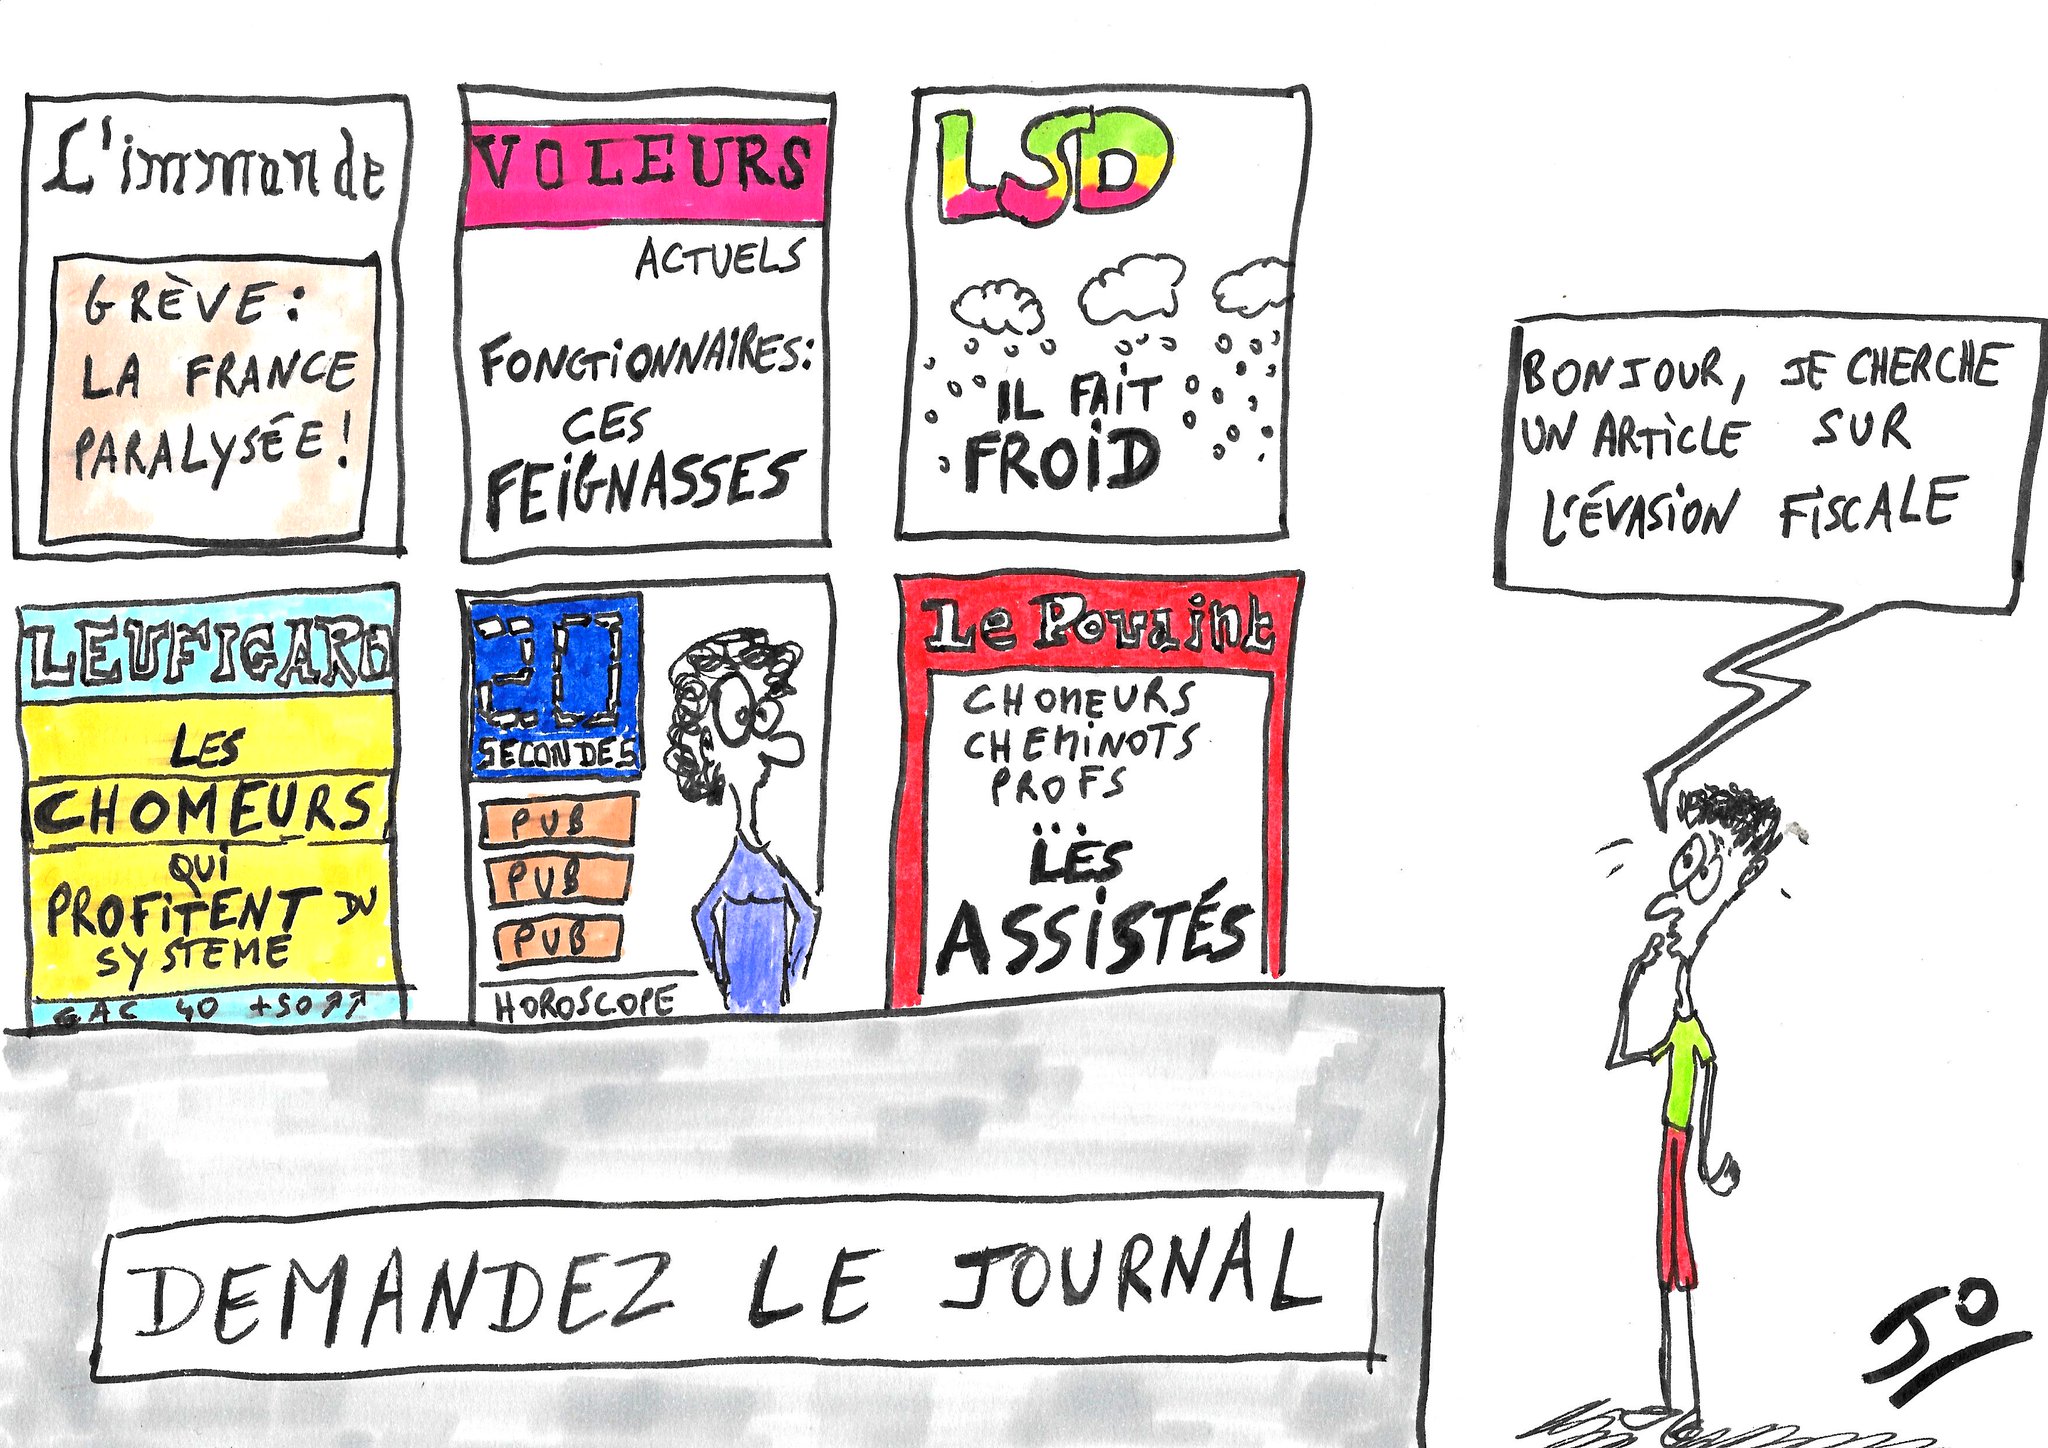 L'immonde
GRÈVE:
LA FRANCE
PARALYSÉE!
VOLEURS
ACTUELS
FONCTIONNAIRES:
CES
FEIGNASSES
LSD
IL FAIT
FROID
LEUFIGARO
LES
CHOMEURS
QUI
PROFITENT DU
SYSTEME
CAC 40 +50↗↗
20
SECONDES
PUB
PUB
PUB
HOROSCOPE
Le Povaint
CHOMEURS
CHEMINOTS
PROFS
...
LES
ASSISTÉS
BONJOUR, JE CHERCHE
UN ARTICLE SUR
L'ÉVASION FISCALE
DEMANDEZ LE JOURNAL
JO